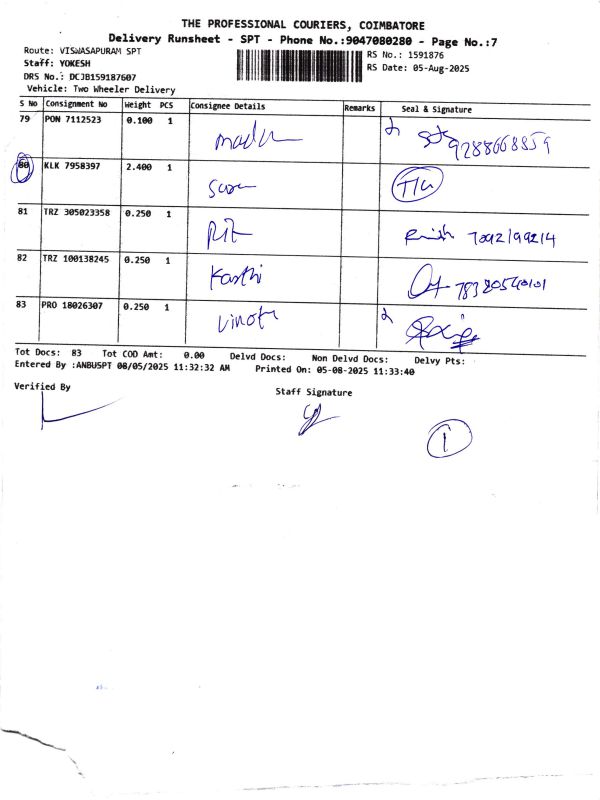 THE PROFESSIONAL COURIERS, COIMBATORE
Delivery Runsheet - SPT - Phone No.:9047080280 - Page No.:7
Route: VISWASAPURAM SPT
RS No.: 1591876
Staff: YOKESH
RS Date: 05-Aug-2025
DRS No.: DCJB159187607
Vehicle: Two Wheeler Delivery
S No Consignment No Weight PCS Consignee Details Remarks Seal & Signature
79 PON 7112523 0.100 1
9288668859
80 KLK 7958397 2.400 1
81 TRZ 305023358 0.250 1
7092199214
82 TRZ 100138245 0.250 1 Karthi
83 PRO 18026307 0.250 1
Tot Docs: 83 Tot COD Amt: 0.00 Delvd Docs: Non Delvd Docs: Delvy Pts:
Entered By :ANBUSPT 08/05/2025 11:32:32 AM Printed On: 05-08-2025 11:33:40
Verified By
Staff Signature
1